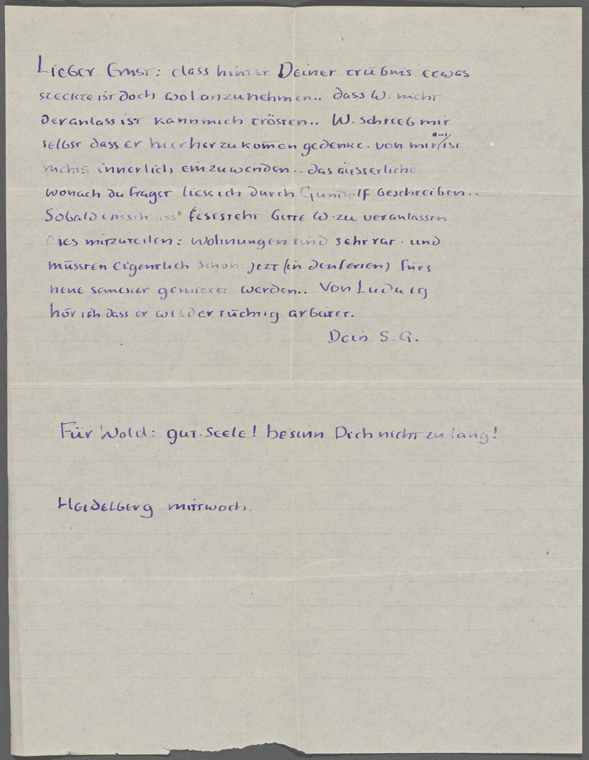 Lieber Ernst: dass hinter Deiner trübnis etwas
steckte ist doch wol anzunehmen.. dass W. nicht
der anlass ist kann mich trösten.. W. schrieb mir
selbst dass er hierher zu komen gedenke. von mir aus/ist
nichts innerlich einzuwenden.. das äusserliche
wonach du fragst liess ich durch Gundolf beschreiben..
Sobald entschluss feststeht bitte W. zu veranlassen
dies mitzuteilen: wohnungen sind sehr rar. und
müssten eigentlich schon jezt (in den ferien) fürs
neue semester gemietet werden.. Von Ludwig
hör ich dass er wieder tüchtig arbeitet.
Dein S. G.
Für Wold: gut. Seele! besinn Dich nicht zu lang!
Heidelberg mittwoch.